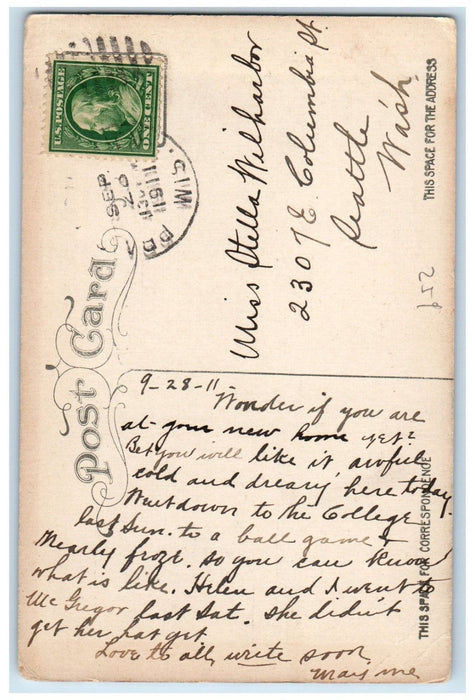 U.S. POSTAGE
ONE CENT
SEP
1911
WIS.
Post Card
THIS SPACE FOR THE ADDRESS
Miss Stella Wilharbor
2307 E. Columbia St.
Seattle
Wash.
THIS SPACE FOR CORRESPONDENCE
9-28-11-
Wonder if you are
at your new home yet?
Bet you will like it, awful
cold and dreary here today.
Went down to the College
last Sun. to a ball game &
nearly froze. so you can know
what is like. Helen and I went to
Mc Gregor last Sat. she didnt
get her hat yet
Love to all, write soon